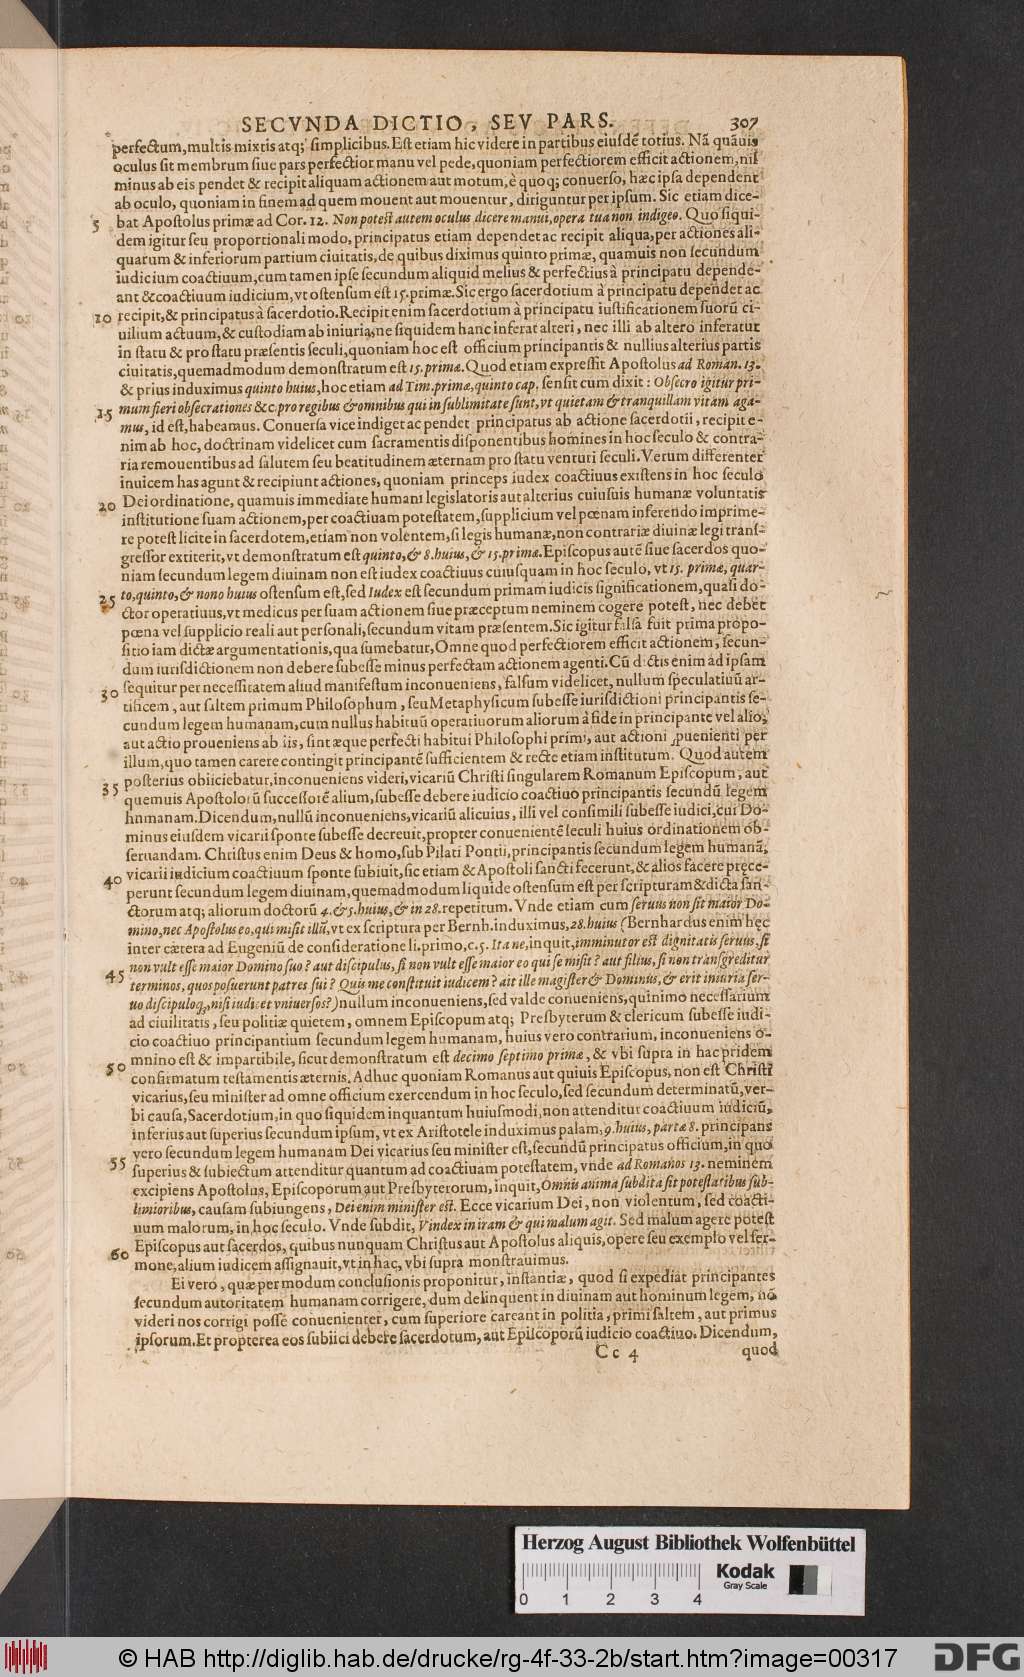 SECVNDA DICTIO, SEV PARS. 307
perfectum, multis mixtis atq; simplicibus. Est etiam hic videre in partibus eiusdē totius. Nā quāuis
oculus sit membrum siue pars perfectior manu vel pede, quoniam perfectiorem efficit actionem, nil
minus ab eis pendet & recipit aliquam actionem aut motum, è quoq; conuerso, hæc ipsa dependent
ab oculo, quoniam in finem ad quem mouent aut mouentur, diriguntur per ipsum. Sic etiam dice-
5 bat Apostolus primæ ad Cor. 12. Non potest autem oculus dicere manui, opera tua non indigeo. Quo siqui-
dem igitur seu proportionali modo, principatus etiam dependet ac recipit aliqua, per actiones ali-
quarum & inferiorum partium ciuitatis, de quibus diximus quinto primæ, quamuis non secundum
iudicium coactiuum, cum tamen ipse secundum aliquid melius & perfectius à principatu depende-
ant & coactiuum iudicium, vt ostensum est 15. primæ. Sic ergo sacerdotium à principatu dependet ac
10 recipit, & principatus à sacerdotio. Recipit enim sacerdotium à principatu iustificationem suorū ci-
uilium actuum, & custodiam ab iniuria, ne siquidem hanc inferat alteri, nec illi ab altero inferatur
in statu & pro statu præsentis seculi, quoniam hoc est officium principantis & nullius alterius partis
ciuitatis, quemadmodum demonstratum est 15. primæ. Quod etiam expressit Apostolus ad Roman. 13.
& prius induximus quinto huius, hoc etiam ad Tim. primæ, quinto cap. sensit cum dixit: Obsecro igitur pri-
15 mum fieri obsecrationes &c. pro regibus & omnibus qui in sublimitate sunt, vt quietam & tranquillam vitam aga-
mus, id est, habeamus. Conuersa vice indiget ac pendet principatus ab actione sacerdotii, recipit e-
nim ab hoc, doctrinam videlicet cum sacramentis disponentibus homines in hoc seculo & contra-
ria remouentibus ad salutem seu beatitudinem æternam pro statu venturi seculi. Verum differenter
inuicem has agunt & recipiunt actiones, quoniam princeps iudex coactiuus existens in hoc seculo
20 Dei ordinatione, quamuis immediate humani legislatoris aut alterius cuiusuis humanæ voluntatis
institutione suam actionem, per coactiuam potestatem, supplicium vel pœnam inferendo imprime-
re potest licite in sacerdotem, etiam non volentem, si legis humanæ, non contrariæ diuinæ legi trans-
gressor extiterit, vt demonstratum est quinto, & 8. huius, & 15. primæ. Episcopus autē siue sacerdos quo-
niam secundum legem diuinam non est iudex coactiuus cuiusquam in hoc seculo, vt 15. primæ, quar-
25 to, quinto, & nono huius ostensum est, sed Iudex est secundum primam iudicis significationem, quasi do-
ctor operatiuus, vt medicus per suam actionem siue præceptum neminem cogere potest, nec debet
pœna vel supplicio reali aut personali, secundum vitam præsentem. Sic igitur falsa fuit prima propo-
sitio iam dictæ argumentationis, qua sumebatur, Omne quod perfectiorem efficit actionem, secun-
dum iurisdictionem non debere subesse minus perfectam actionem agenti. Cū dictis enim ad ipsam
30 sequitur per necessitatem aliud manifestum inconueniens, falsum videlicet, nullum speculatiuū ar-
tificem, aut saltem primum Philosophum, seu Metaphysicum subesse iurisdictioni principantis se-
cundum legem humanam, cum nullus habituū operatiuorum aliorum à fide in principante vel alio,
aut actio proueniens ab iis, sint æque perfecti habitui Philosophi primi, aut actioni ꝓuenienti per
illum, quo tamen carere contingit principantē sufficientem & recte etiam institutum. Quod autem
35 posterius obiiciebatur, inconueniens videri, vicariū Christi singularem Romanum Episcopum, aut
quemuis Apostolorū successorē alium, subesse debere iudicio coactiuo principantis secundū legem
humanam. Dicendum, nullū inconueniens, vicariū alicuius, illi vel consimili subesse iudici, cui Do-
minus eiusdem vicarii sponte subesse decreuit, propter conuenientē seculi huius ordinationem ob-
seruandam. Christus enim Deus & homo, sub Pilati Pontii, principantis secundum legem humanā,
40 vicarii iudicium coactiuum sponte subiuit, sic etiam & Apostoli sancti fecerunt, & alios facere pręce-
perunt secundum legem diuinam, quemadmodum liquide ostensum est per scripturam & dicta san-
ctorum atq; aliorum doctorū 4. & 5. huius, & in 28. repetitum. Vnde etiam cum seruus non sit maior Do-
mino, nec Apostolus eo, qui misit illū, vt ex scriptura per Bernh. induximus, 28. huius (Bernhardus enim hęc
inter cætera ad Eugeniū de consideratione li. primo, c. 5. Ita ne, inquit, imminutor est dignitatis seruus, si
45 non vult esse maior Domino suo? aut discipulus, si non vult esse maior eo qui se misit? aut filius, si non transgreditur
terminos, quos posuerunt patres sui? Quis me constituit iudicem? ait ille magister & Dominus, & erit iniuria ser-
uo discipuloq;, nisi iudicet vniuersos?) nullum inconueniens, sed valde conueniens, quinimo necessarium
ad ciuilitatis, seu politiæ quietem, omnem Episcopum atq; Presbyterum & clericum subesse iudi-
cio coactiuo principantium secundum legem humanam, huius vero contrarium, inconueniens o-
50 mnino est & impartibile, sicut demonstratum est decimo septimo primæ, & vbi supra in hac pridem
confirmatum testamentis æternis. Adhuc quoniam Romanus aut quiuis Episcopus, non est Christi
vicarius, seu minister ad omne officium exercendum in hoc seculo, sed secundum determinatū, ver-
bi causa, Sacerdotium, in quo siquidem inquantum huiusmodi, non attenditur coactiuum iudiciū,
inferius aut superius secundum ipsum, vt ex Aristotele induximus palam, 9. huius, partæ 8. principans
55 vero secundum legem humanam Dei vicarius seu minister est, secundū principatus officium, in quo
superius & subiectum attenditur quantum ad coactiuam potestatem, vnde ad Romanos 13. neminem
excipiens Apostolus, Episcoporum aut Presbyterorum, inquit, Omnis anima subdita sit potestatibus sub-
limioribus, causam subiungens, Dei enim minister est. Ecce vicarium Dei, non violentum, sed coacti-
uum malorum, in hoc seculo. Vnde subdit, Vindex in iram & qui malum agit. Sed malum agere potest
60 Episcopus aut sacerdos, quibus nunquam Christus aut Apostolus aliquis, opere seu exemplo vel ser-
mone, alium iudicem assignauit, vt in hac, vbi supra monstrauimus.
Ei vero, quæ per modum conclusionis proponitur, instantiæ, quod si expediat principantes
secundum autoritatem humanam corrigere, dum delinquent in diuinam aut hominum legem, nō
videri nos corrigi posse conuenienter, cum superiore careant in politia, primi saltem, aut primus
ipsorum. Et propterea eos subiici debere sacerdotum, aut Episcoporū iudicio coactiuo. Dicendum,
Cc 4 quod
Herzog August Bibliothek Wolfenbüttel
Kodak
Gray Scale
0 1 2 3 4
© HAB http://diglib.hab.de/drucke/rg-4f-33-2b/start.htm?image=00317
DFG